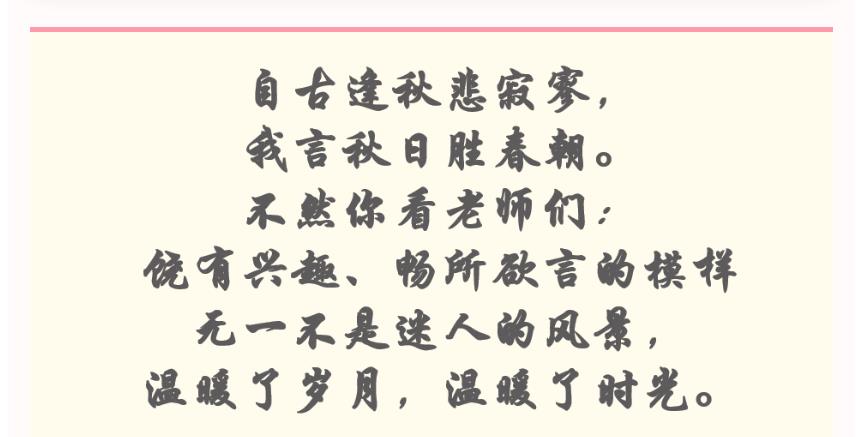 自古逢秋悲寂寥，
我言秋日胜春朝。
不然你看老师们：
饶有兴趣、畅所欲言的模样
无一不是迷人的风景，
温暖了岁月，温暖了时光。